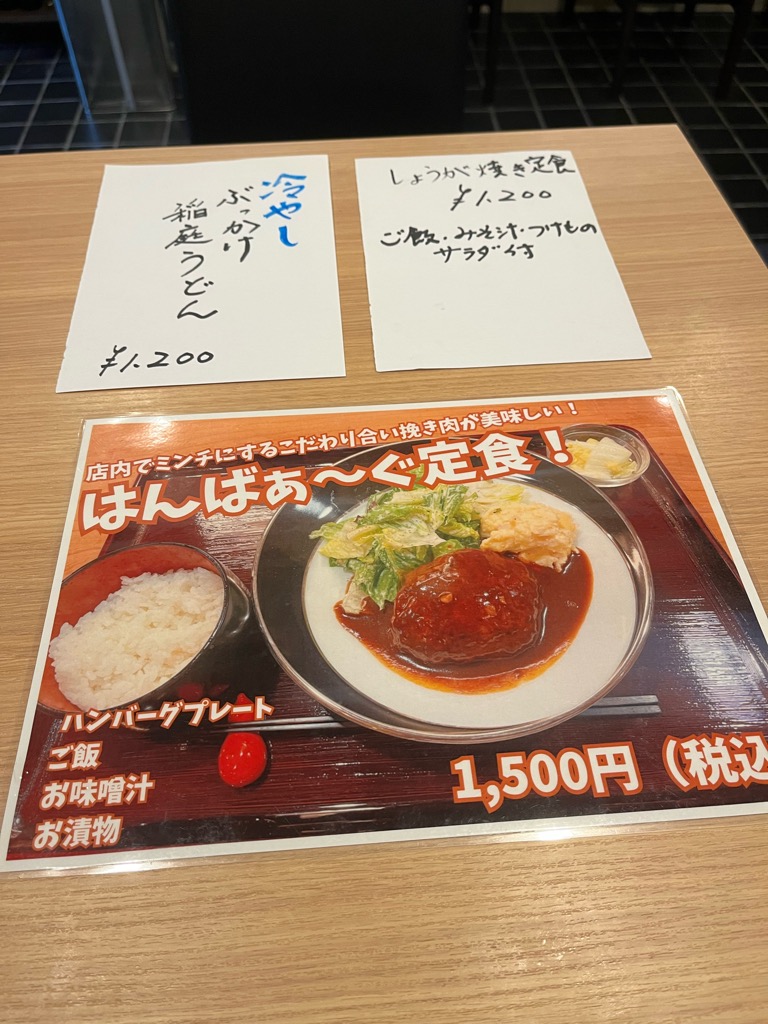 冷やし
ぶっかけ
稲庭うどん
¥1.200
しょうが焼き定食
¥1.200
ご飯・みそ汁・つけもの
サラダ付
店内でミンチにするこだわり合い挽き肉が美味しい!
はんばぁ〜ぐ定食!
ハンバーグプレート
ご飯
お味噌汁
お漬物
1,500円(税込